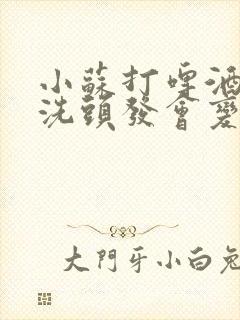 小蘇打啤酒
洗頭發會變
大門牙小白兔